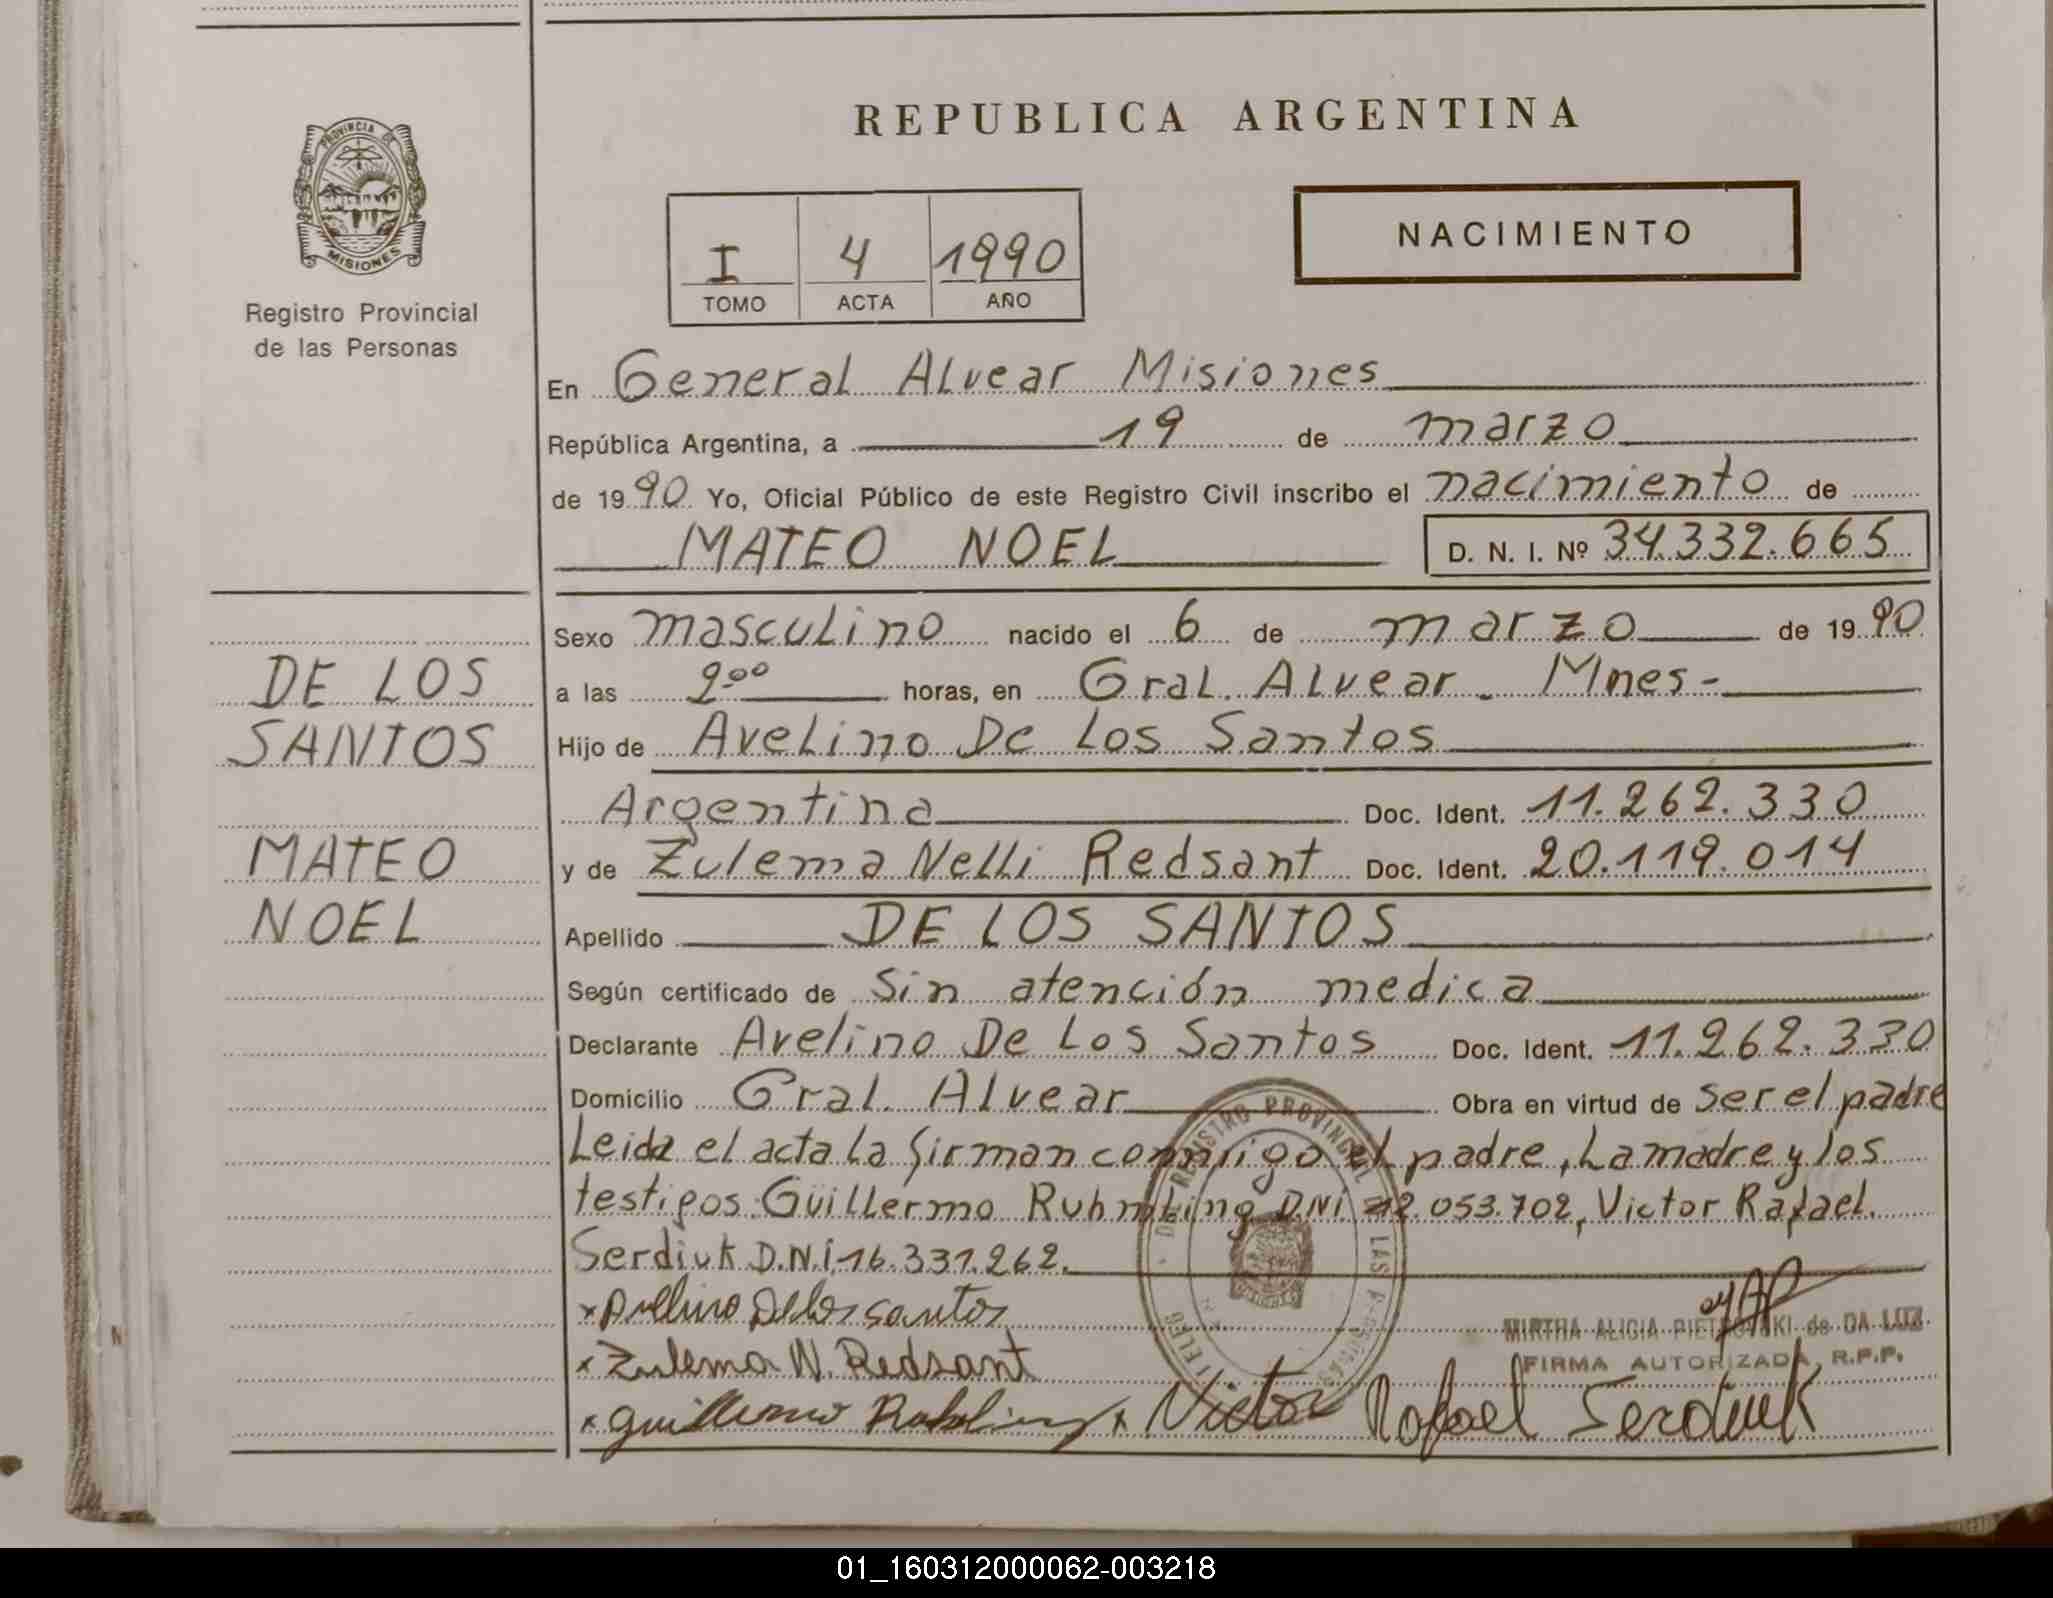 REPUBLICA ARGENTINA
PROVINCIA DE
MISIONES
Registro Provincial
de las Personas
I 4 1990
TOMO ACTA AÑO
NACIMIENTO
En General Alvear Misiones
República Argentina, a 19 de marzo
de 1990 Yo, Oficial Público de este Registro Civil inscribo el nacimiento de
MATEO NOEL D. N. I. Nº 34.332.665
Sexo masculino nacido el 6 de marzo de 1990
a las 2⁰⁰ horas, en Gral. Alvear. Mnes-
Hijo de Avelino De Los Santos
Argentina Doc. Ident. 11.262.330
y de Zulema Nelli Redsant Doc. Ident. 20.119.014
Apellido DE LOS SANTOS
Según certificado de Sin atención medica
Declarante Avelino De Los Santos Doc. Ident. 11.262.330
Domicilio Gral. Alvear Obra en virtud de ser el padre
Leida el acta la firman conmigo el padre, La madre y los
testigos: Guillermo D.N.i 12.053.702, Victor Rafael.
Serdiuk D.N.i 16.331.262.
DE LOS
SANTOS
MATEO
NOEL
x Avelino De los santos
x Zulema N. Redsant
x Guillermo x Victor Rafael Serdiuk
REGISTRO PROVINCIAL DE LAS
MIRTHA ALICIA PIETROVSKI de DA LUZ
FIRMA AUTORIZADA, R.P.P.
01_160312000062-003218